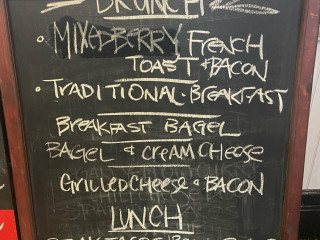 BRUNCH
• MIXEDBERRY FRENCH
TOAST + BACON
• TRADITIONAL BREAKFAST
BREAKFAST BAGEL
BAGEL & CREAM CHEESE
GRILLED CHEESE & BACON
LUNCH